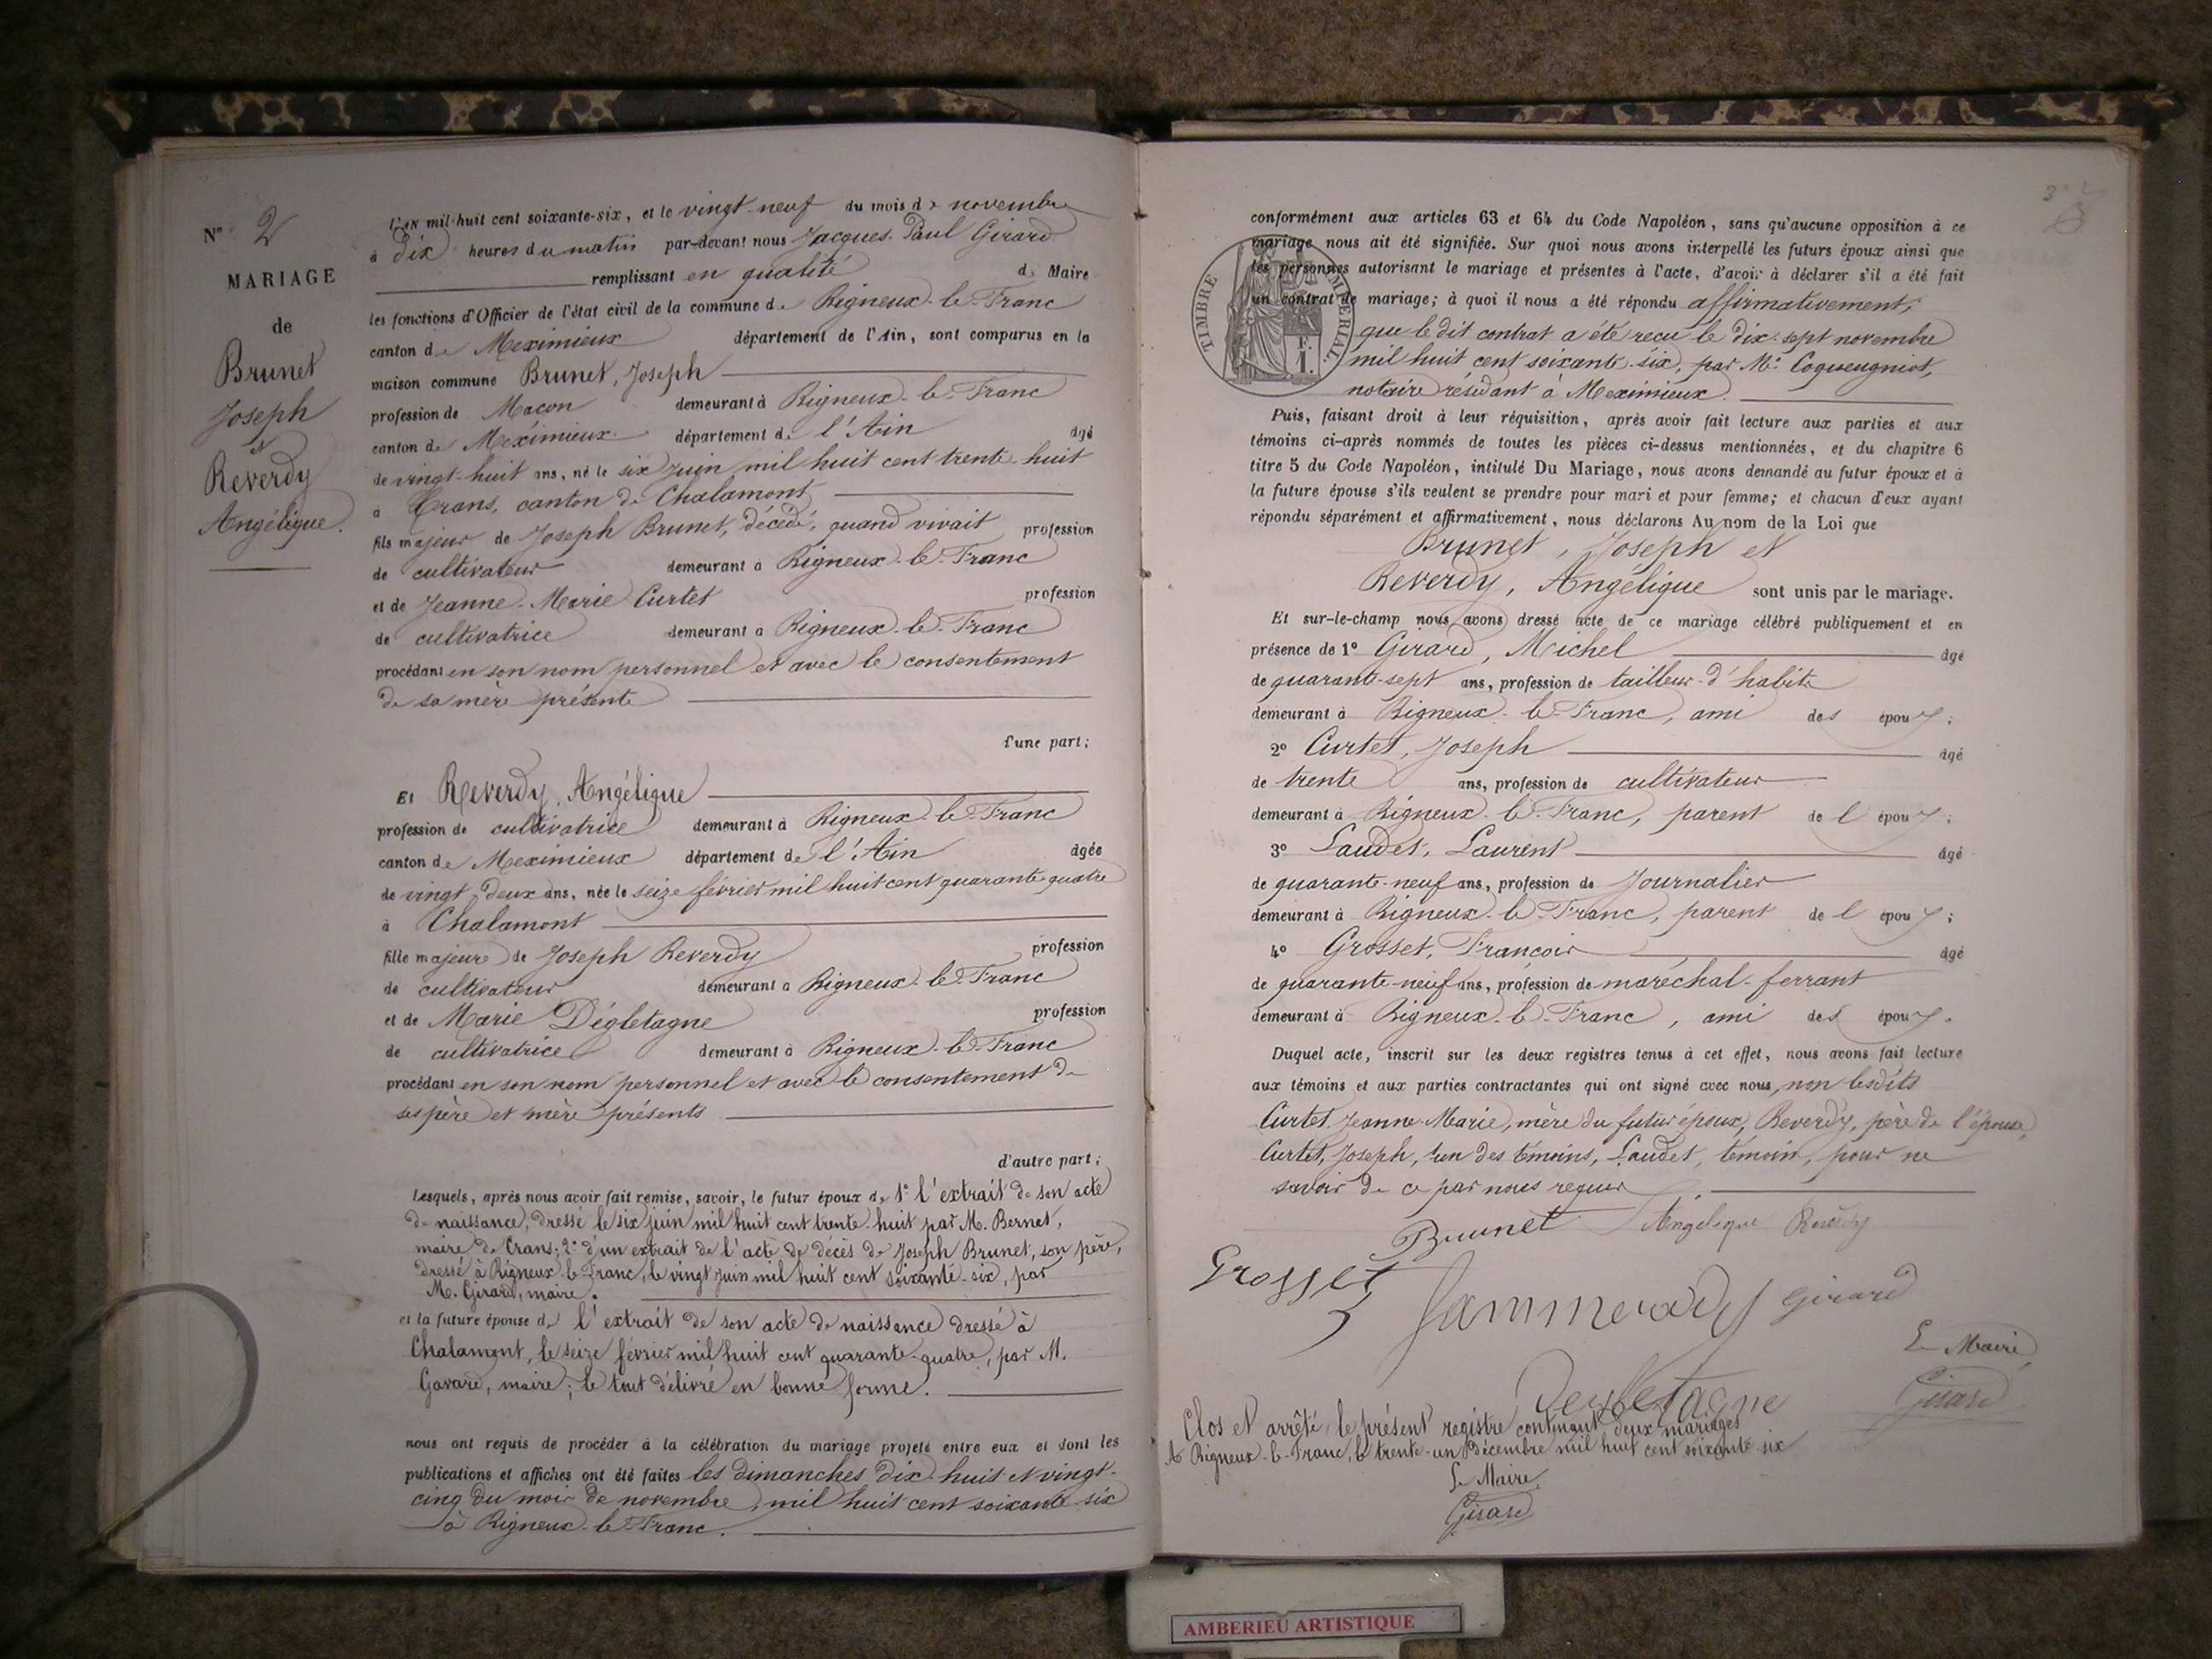 N° 2
MARIAGE
de
Brunet
Joseph
et
Reverdy
Angélique.
L'AN mil-huit cent soixante-six, et le vingt-neuf du mois de novembre
à dix heures du matin par-devant nous Jacques Paul Girard
remplissant en qualité de Maire
les fonctions d'Officier de l'état civil de la commune de Rigneux-le-Franc
canton de Meximieux département de l'Ain, sont comparus en la
maison commune Brunet, Joseph
profession de Maçon demeurant à Rigneux-le-Franc
canton de Meximieux département de l'Ain âgé
de vingt-huit ans, né le six juin mil huit cent trente-huit
à Crans, canton de Chalamont
fils majeur de Joseph Brunet, décédé, quand vivait profession
de cultivateur demeurant à Rigneux-le-Franc
et de Jeanne-Marie Curtet profession
de cultivatrice demeurant à Rigneux-le-Franc
procédant en son nom personnel et avec le consentement
de sa mère présente
d'une part;
Et Reverdy, Angélique
profession de cultivatrice demeurant à Rigneux-le-Franc
canton de Meximieux département de l'Ain âgée
de vingt-deux ans, née le seize février mil huit cent quarante-quatre
à Chalamont
fille majeure de Joseph Reverdy profession
de cultivateur demeurant à Rigneux-le-Franc
et de Marie Dégletagne profession
de cultivatrice demeurant à Rigneux-le-Franc
procédant en son nom personnel et avec le consentement de
ses père et mère présents
d'autre part;
Lesquels, après nous avoir fait remise, savoir, le futur époux de 1° l'extrait de son acte
de naissance, dressé le six juin mil huit cent trente-huit par M. Bernet,
maire de Crans; 2° d'un extrait de l'acte de décès de Joseph Brunet, son père,
dressé à Rigneux-le-Franc, le vingt juin mil huit cent soixante-six, par
M. Girard, maire.
et la future épouse de l'extrait de son acte de naissance dressé à
Chalamont, le seize février mil huit cent quarante-quatre, par M.
Gavard, maire; le tout délivré en bonne forme.
nous ont requis de procéder à la célébration du mariage projeté entre eux et dont les
publications et affiches ont été faites les dimanches dix-huit et vingt-
cinq du mois de novembre, mil huit cent soixante-six
à Rigneux-le-Franc.
TIMBRE IMPÉRIAL
1 F.
conformément aux articles 63 et 64 du Code Napoléon, sans qu'aucune opposition à ce
mariage nous ait été signifiée. Sur quoi nous avons interpellé les futurs époux ainsi que
les personnes autorisant le mariage et présentes à l'acte, d'avoir à déclarer s'il a été fait
un contrat de mariage; à quoi il nous a été répondu affirmativement,
que le dit contrat a été reçu le dix-sept novembre
mil huit cent soixante-six, par Me Coqueugniot,
notaire résidant à Meximieux.
Puis, faisant droit à leur réquisition, après avoir fait lecture aux parties et aux
témoins ci-après nommés de toutes les pièces ci-dessus mentionnées, et du chapitre 6
titre 5 du Code Napoléon, intitulé Du Mariage, nous avons demandé au futur époux et à
la future épouse s'ils veulent se prendre pour mari et pour femme; et chacun d'eux ayant
répondu séparément et affirmativement, nous déclarons Au nom de la Loi que
Brunet, Joseph et
Reverdy, Angélique sont unis par le mariage.
Et sur-le-champ nous avons dressé acte de ce mariage célébré publiquement et en
présence de 1° Girard, Michel âgé
de quarante-sept ans, profession de tailleur d'habits
demeurant à Rigneux-le-Franc, ami des époux;
2° Curtet, Joseph âgé
de trente ans, profession de cultivateur
demeurant à Rigneux-le-Franc, parent de l'époux;
3° Laudet, Laurent âgé
de quarante-neuf ans, profession de Journalier
demeurant à Rigneux-le-Franc, parent de l'époux;
4° Grosset, François âgé
de quarante-neuf ans, profession de maréchal-ferrant
demeurant à Rigneux-le-Franc, ami des époux.
Duquel acte, inscrit sur les deux registres tenus à cet effet, nous avons fait lecture
aux témoins et aux parties contractantes qui ont signé avec nous, non lesdits
Curtet, Jeanne-Marie, mère du futur époux, Reverdy, père de l'épouse,
Curtet, Joseph, l'un des témoins, Laudet, témoin, pour ne
savoir de ce par nous requis.
Brunet Angelique
Grosset Girard
Le Maire
Girard
Clos et arrêté le présent registre contenant deux mariages
A Rigneux-le-Franc, le trente-un Décembre mil huit cent soixante-six
Le Maire
Girard
AMBERIEU ARTISTIQUE